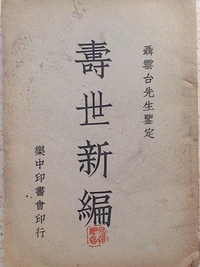 聶雲台先生鑒定
壽世新編
樂中印書會印行